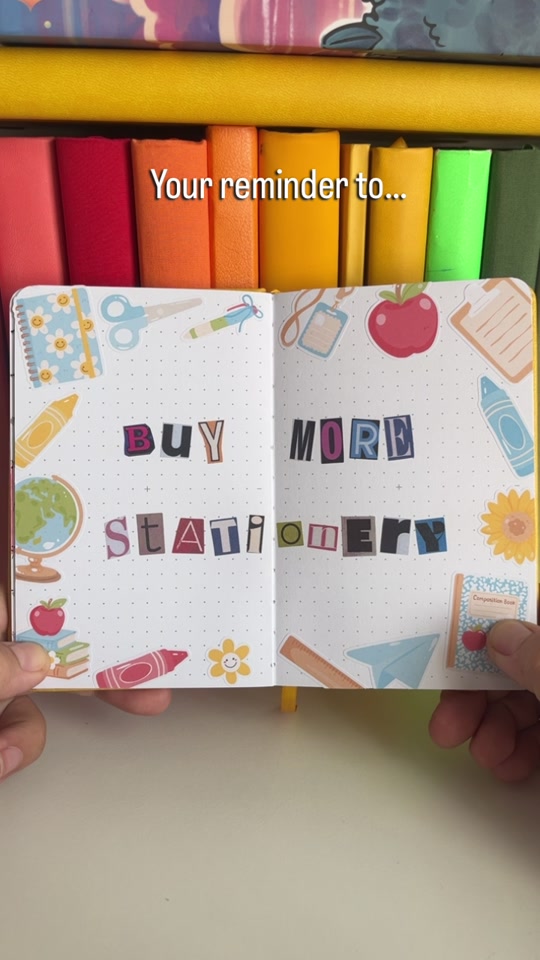 Your reminder to...
BUY MORE
StATionErY
Composition Book